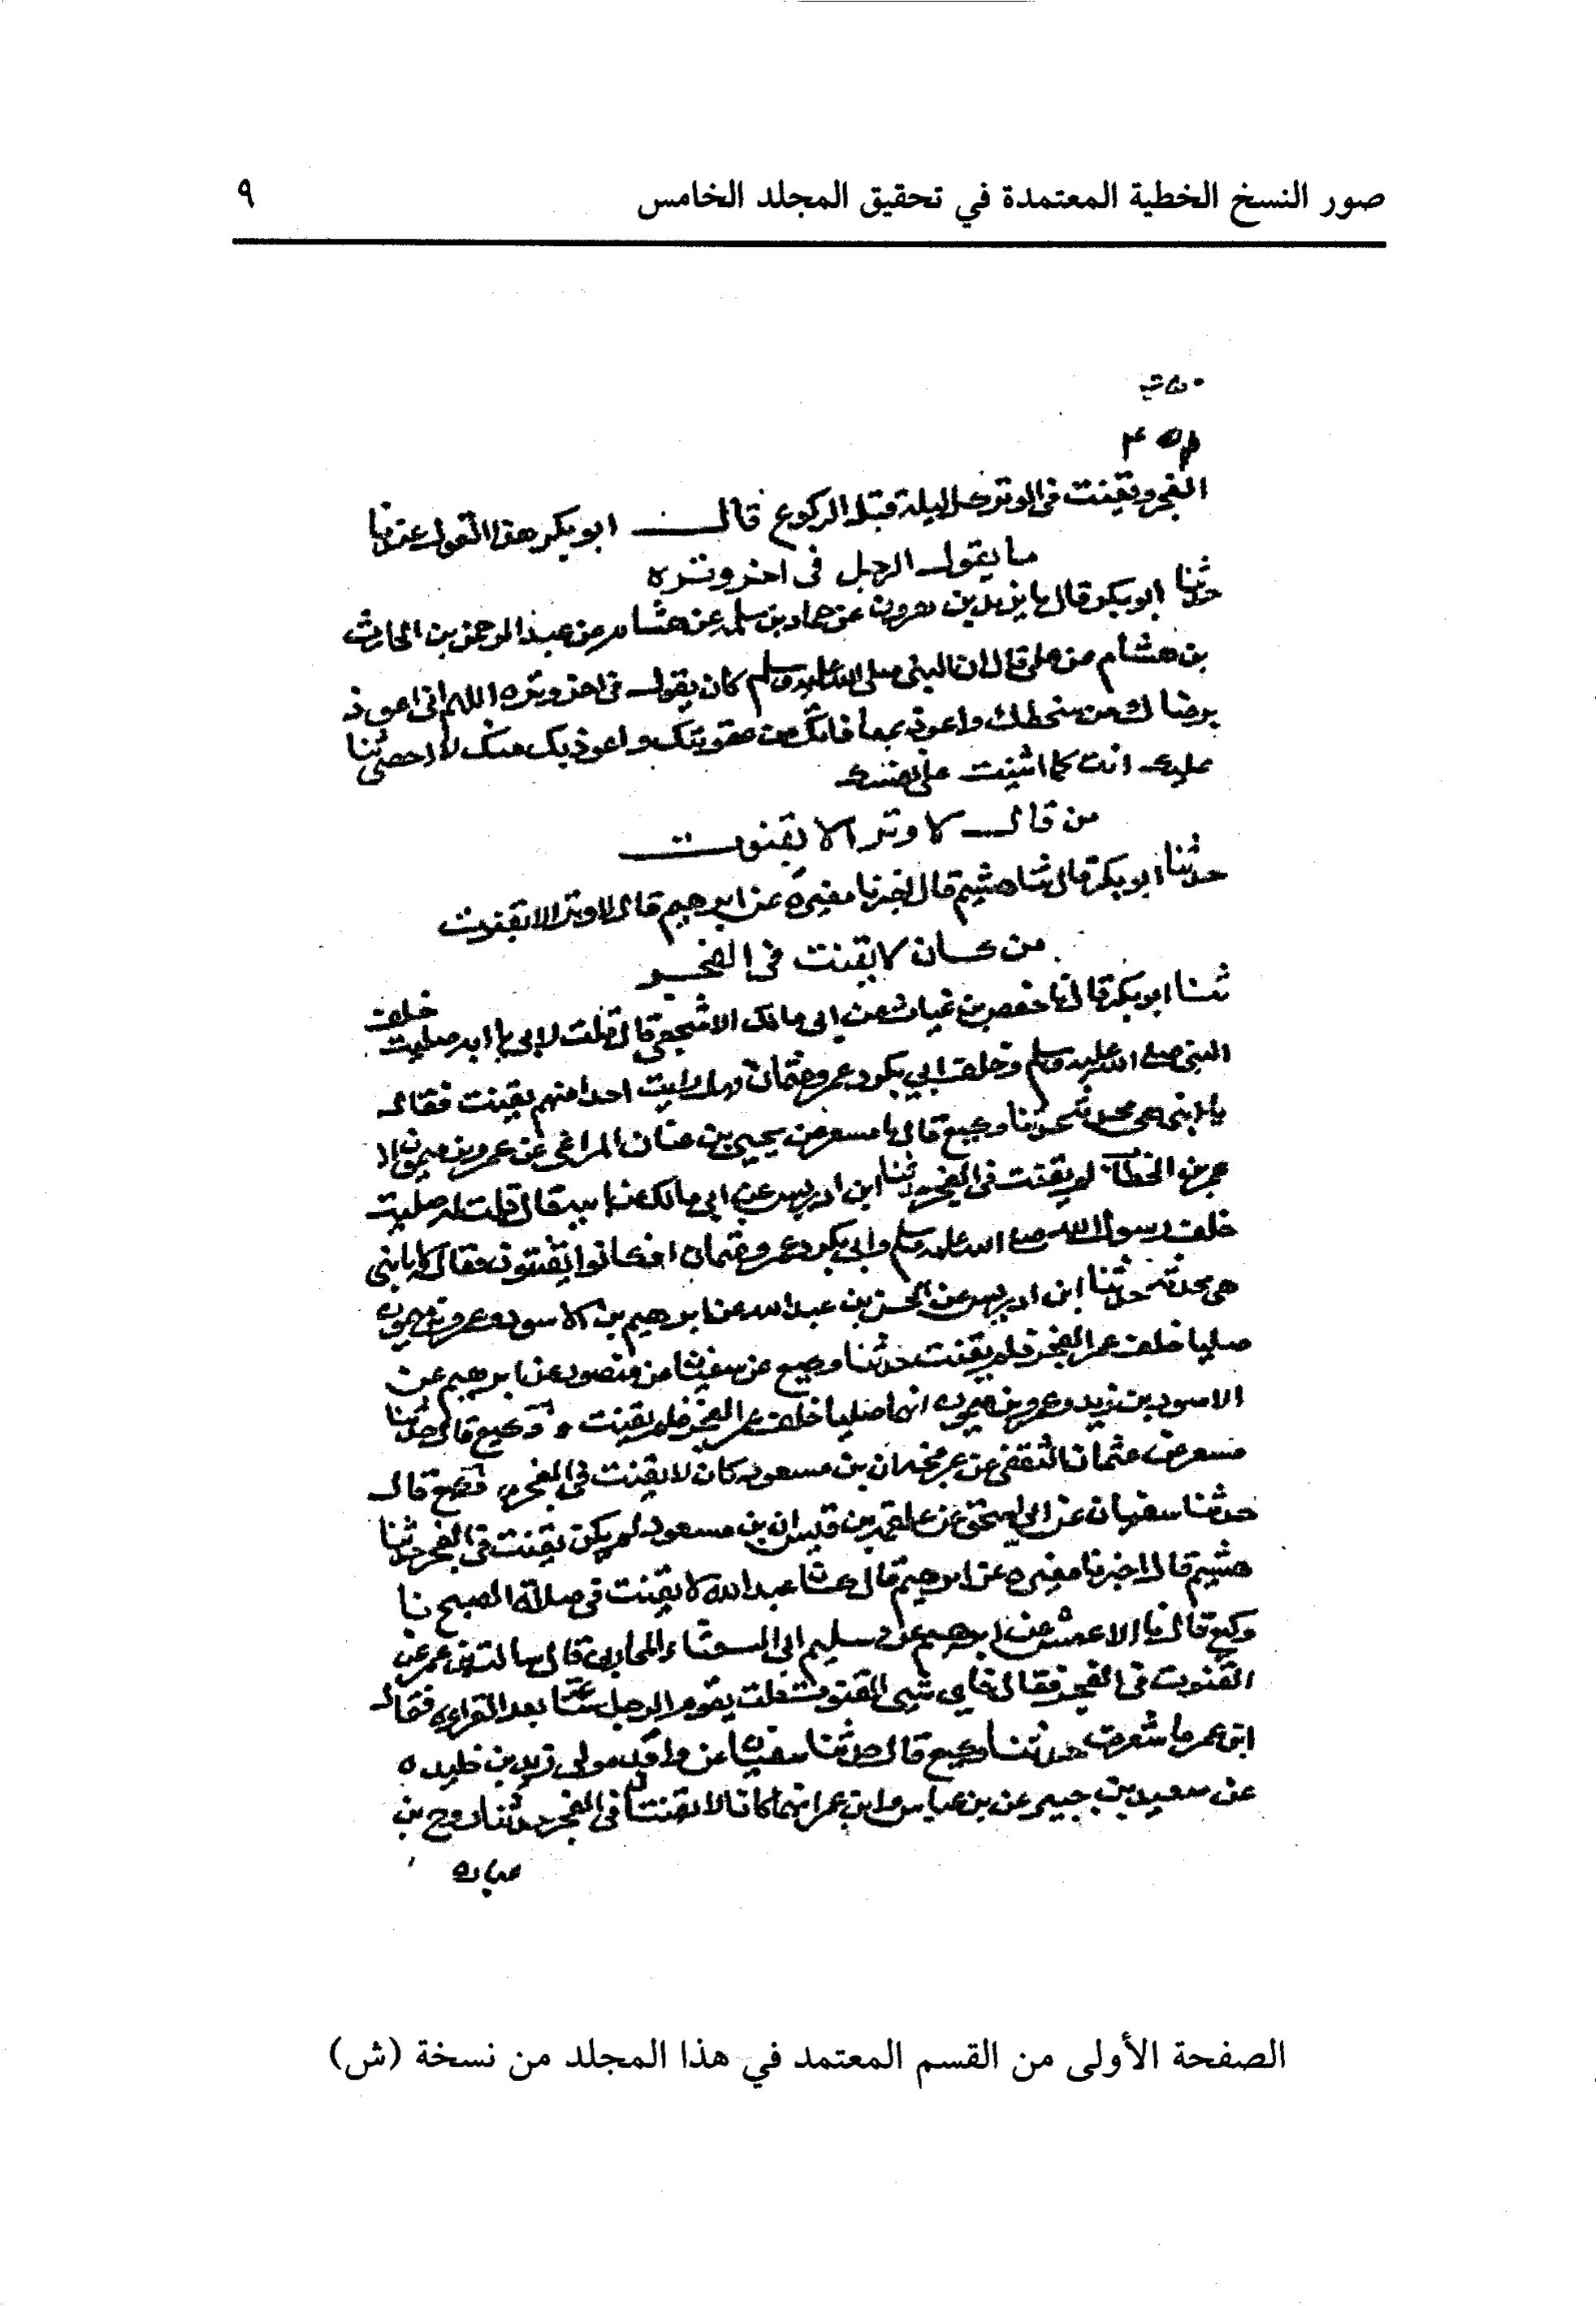 صور النسخ الخطية المعتمدة في تحقيق المجلد الخامس ٩
الفجر ويقنت في الوتر كل ليلة قبل الركوع قال ابو بكر هذا القول عندنا
ما يقول الرجل فى اخر وتره
حدثنا ابو بكر قال نا يزيد بن هرون عن حماد بن سلمه عن هشام عن عبد الرحمن بن الحارث
بن هشام عن على قال ان النبى صلى الله عليه وسلم كان يقول فى اخر وتره اللهم انى اعوذ
برضاك من سخطك واعوذ بمعافاتك من عقوبتك واعوذ بك منك لا احصى ثنا
عليك انت كما اثنيت على نفسك
من قال لا وتر الا بقنوت
حدثنا ابو بكر قال ثنا هشيم قال اخبرنا مغيره عن ابرهيم قال لا وتر الا بقنوت
من كان لا يقنت فى الفجر
ثنا ابو بكر قال نا حفص بن غياث عن ابى مالك الاشجعى قال قلت لابى يا ابه صليت خلف
النبى صلى الله عليه وسلم وخلف ابي بكر وعمر وعثمان فهل رايت احدا منهم يقنت فقال
يا بنى هى محدثة حدثنا وكيع قال نا مسعر عن يحيى بن غسان المرادى عن عمرو بن ميمون ان
عمر بن الخطاب لم يقنت فى الفجر حدثنا ابن ادريس عن ابى مالك عن ابيه قال قلت له صليت
خلف رسول الله صلى الله عليه وسلم وابى بكر وعمر وعثمان افكانوا يقنتون فقال لا يا بنى
هى محدثة حدثنا ابن ادريس عن الحسن بن عبد الله عن ابرهيم بن الاسود وعمرو بن ميمون
صليا خلف عمر الفجر فلم يقنت حدثنا وكيع عن سفين عن منصور عن ابرهيم عن
الاسود بن يزيد وعمرو بن ميمون انهما صليا خلف عمر الفجر فلم يقنت وكيع قال حدثنا
مسعر عن عثمان الثقفى عن عرفجه ان بن مسعود كان لا يقنت فى الفجر وكيع قال
حدثنا سفيان عن ابى اسحق عن علقمه بن قيس ان بن مسعود لم يكن يقنت فى الفجر حدثنا
هشيم قال اخبرنا مغيره عن ابرهيم قال كان عبد الله لا يقنت فى صلاة الصبح نا
وكيع قال نا الاعمش عن ابرهيم عن سليم ابى الشعثاء المحاربى قال سالت بن عمر عن
القنوت فى الفجر فقال فاي شى القنوت قلت يقوم الرجل ساعة بعد القراءه فقال
ابن عمر ما شعرت حدثنا وكيع قال حدثنا سفين عن واقد مولى زيد بن خليده
عن سعيد بن جبير عن بن عباس وابن عمر انهما كانا لا يقنتان فى الفجر حدثنا روح بن
عباده
الصفحة الأولى من القسم المعتمد في هذا المجلد من نسخة (ش)